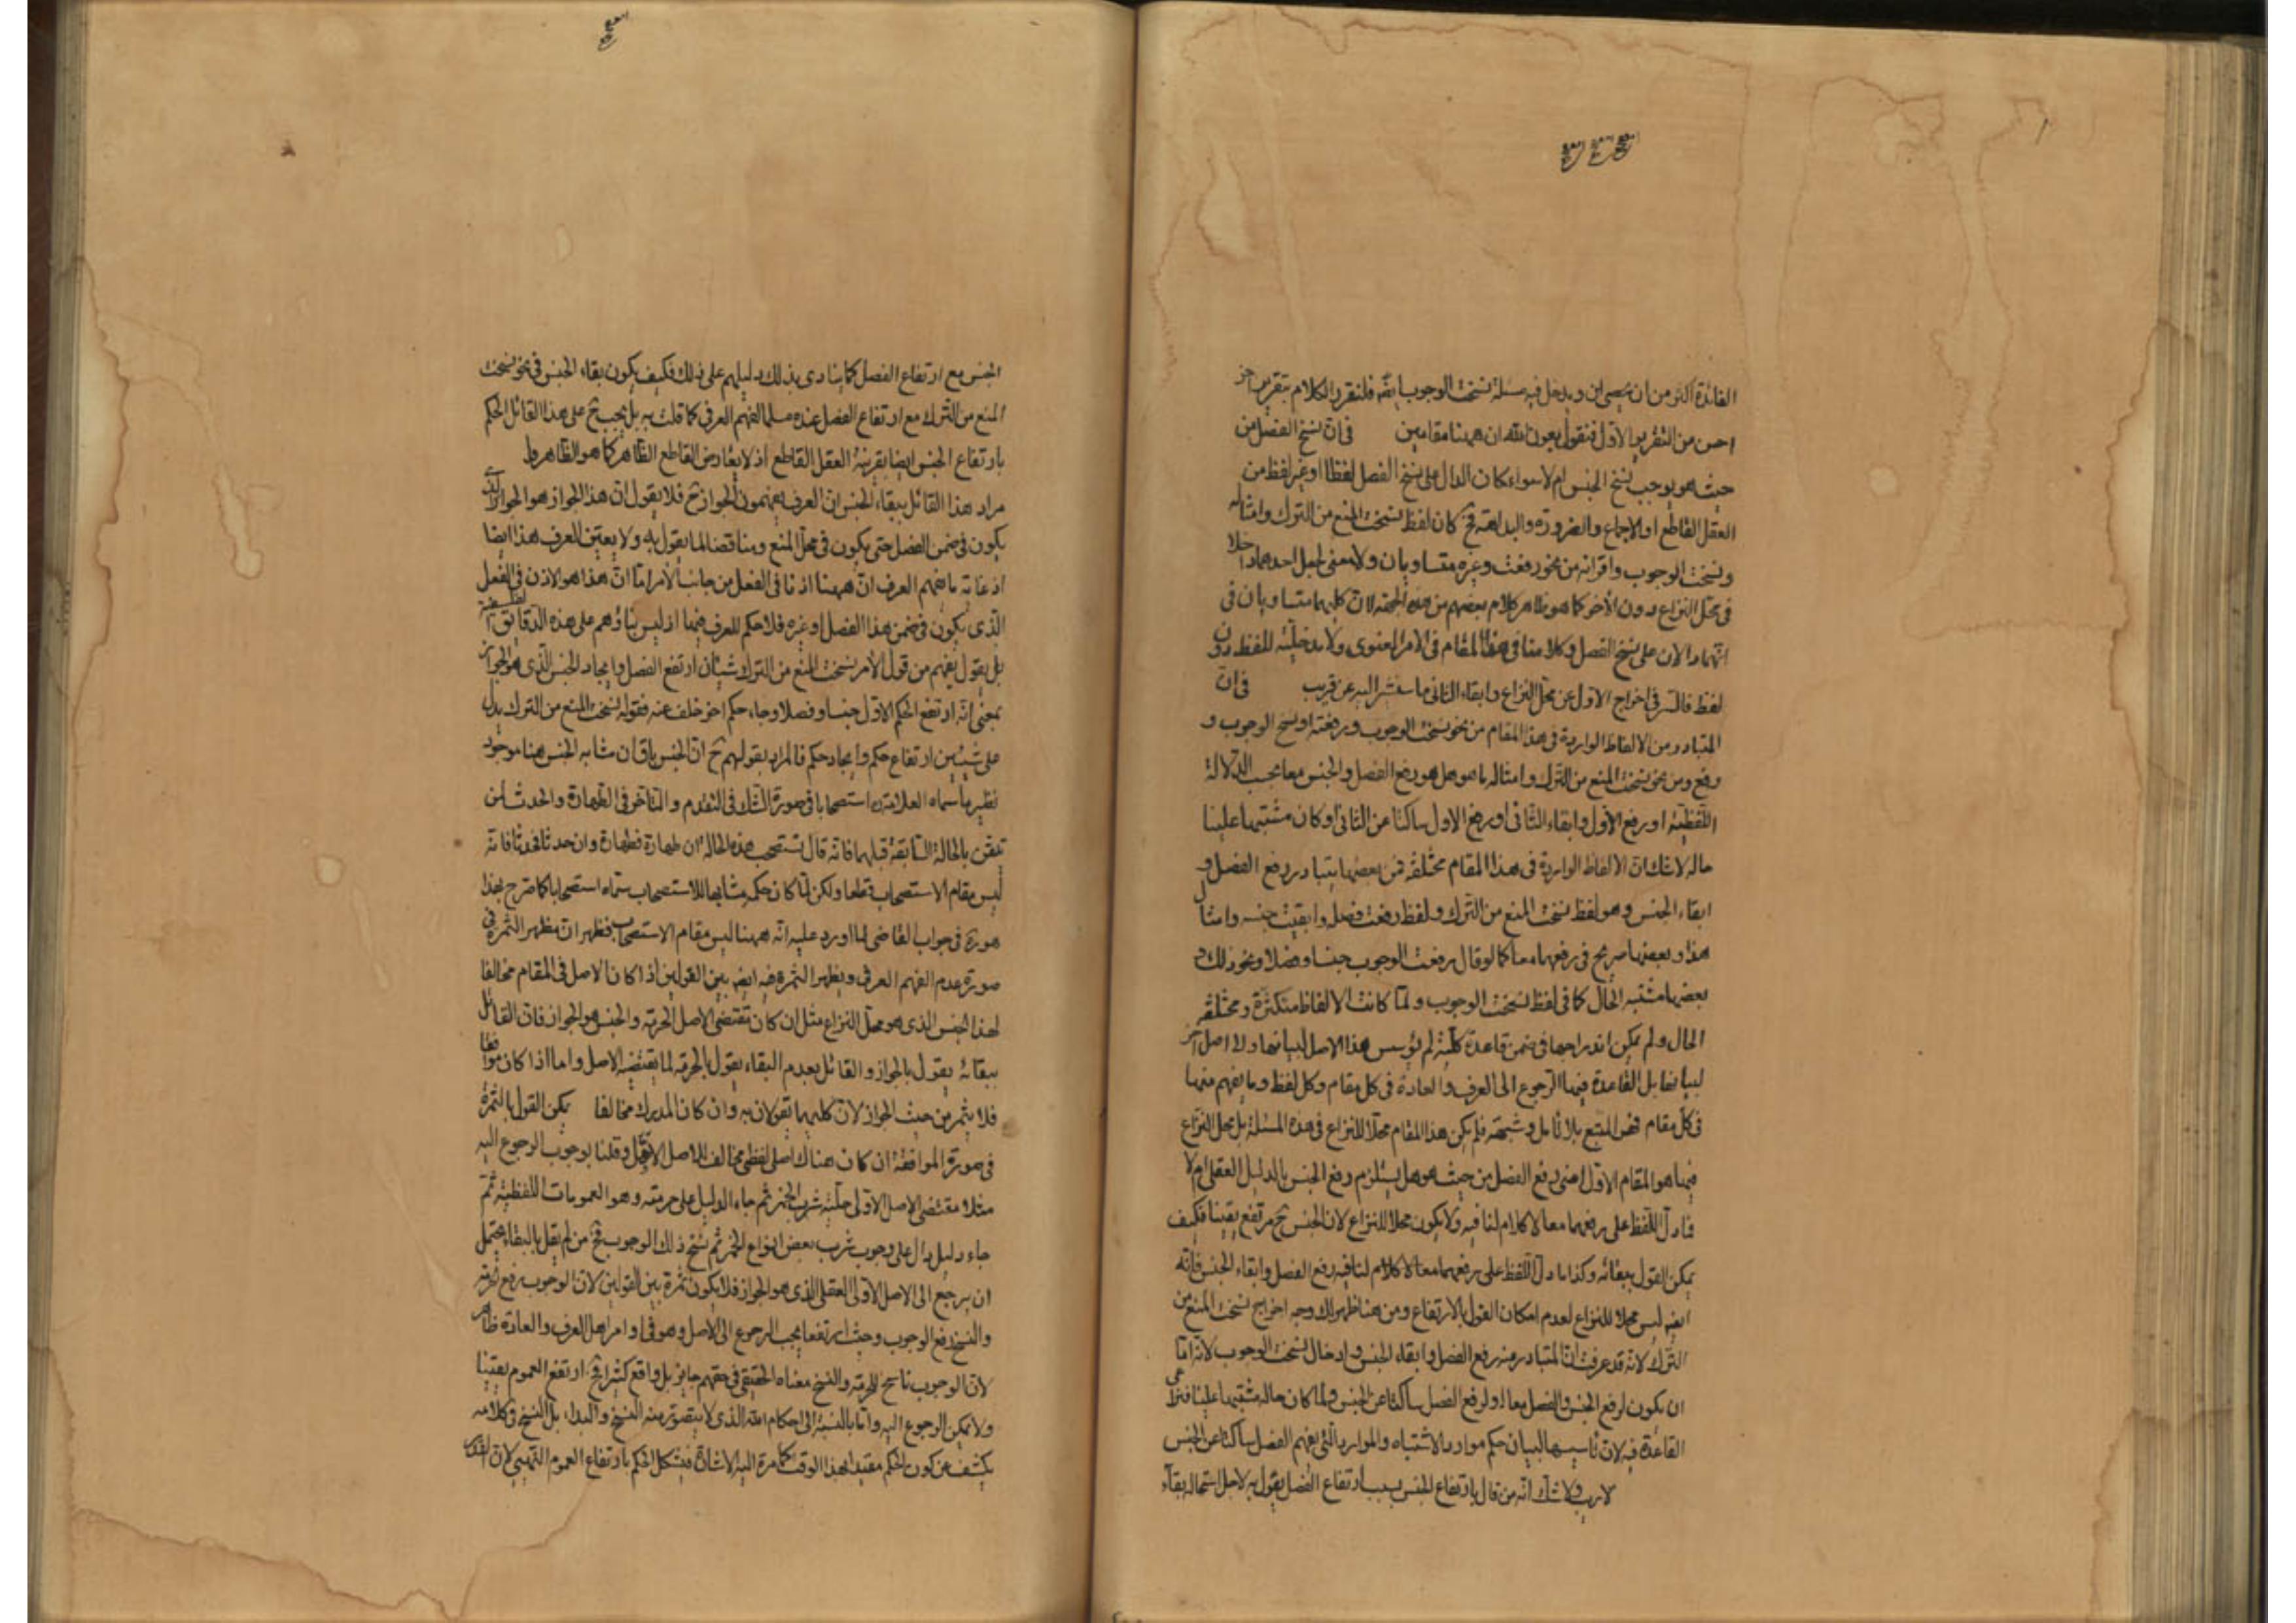 الفائدة اكثر من ان يحصى لمن ويدخل فيه مسئلة نسخت الوجوب ايضه فلنقرر الكلام بتقرير اخر
احسن من التقرير الاول فنقول بعون الله ان ههنا مقامين في ان نسخ الفصل من
حيث هو يوجب نسخ الجنس ام لا سواء كان الدال على نسخ الفصل لفظا او غير لفظ من
العقل القاطع او الاجماع والضرورة والبداهة فح كان لفظ نسخت المنع من الترك وامثاله
ونسخت الوجوب واقرانه من نحو رفعت وغيره متساويان ولا معنى لجعل احدهما داخلا
في محل النزاع دون الآخر كما هو ظاهر كلام بعضهم من هذه الجهة لان كليهما متساويان في
انهما دالان على نسخ الفصل وكلامنا في هذا المقام في الامر المعنوى ولا مدخلية للفظ دون
لفظ فالسر في اخراج الاول عن محل النزاع وابقاء الثاني ما سنشير اليه عن قريب في ان
المتبادر من الالفاظ الواردة في هذا المقام من نحو نسخت الوجوب ورفعته او نسخ الوجوب و
رفع ومن نحو نسخت المنع من الترك وامثاله ما هو هل هو رفع الفصل والجنس معا بحسب الدلالة
اللفظية او رفع الاول وابقاء الثاني او رفع الاول ساكتا عن الثاني او كان مشتبها علينا
حاله لا شك ان الالفاظ الواردة في هذا المقام مختلفة فمن بعضها يتبادر رفع الفصل و
ابقاء الجنس وهو لفظ نسخت المنع من الترك ولفظ رفعت فصله وابقيت جنسه وامثال
هذا وبعضها صريح في رفعهما معا كما لو قال رفعت الوجوب جنسا وفصلا ونحو ذلك و
بعضها مشتبه الحال كما في لفظ نسخت الوجوب ولما كانت الالفاظ متكثرة ومختلفة
الحال ولم يمكن اندراجها في ضمن قاعدة كلية لم يؤسس هذا الاصل لبيانها ولا اصل آخر
لبيانها بل القاعدة فيها الرجوع الى العرف والعادة في كل مقام وكل لفظ وما يفهم منها
في كل مقام فهو المتبع بلا تامل وشبهة فلم يكن هذا المقام محلا للنزاع في هذه المسئلة بل محل النزاع
فيها هو المقام الاول اعنى رفع الفصل من حيث هو هل يستلزم رفع الجنس بالدليل العقلى ام لا
فما دل اللفظ على رفعهما معا لا كلام لنا فيه ولا يكون محلا للنزاع لان الجنس ح مرتفع يقينا فكيف
يمكن القول ببقائه وكذا ما دل اللفظ على رفع الفصل وابقاء الجنس فانه
ايضه ليس محلا للنزاع لعدم امكان القول بالارتفاع ومن هنا ظهر لك وجه اخراج نسخت المنع من
الترك لانه قد عرفت ان المتبادر منه رفع الفصل وابقاء الجنس وادخال نسخت الوجوب لانه اما
ان يكون لرفع الجنس والفصل معا او لرفع الفصل ساكتا عن الجنس ولما كان حاله مشتبها علينا
القاعدة فيه لان تاسيسها لبيان حكم موارد الاشتباه والموارد التى يفهم الفصل ساكتا عن الجنس
لا ريب ولا شك انه من قال بارتفاع الجنس بسبب ارتفاع الفصل يقول به لاجل استحالة بقاء
الجنس مع ارتفاع الفصل كما ينادى بذلك دليلهم على ذلك فكيف يكون بقاء الجنس في نحو نسخت
المنع من الترك مع ارتفاع الفصل عنده مسلما لفهم العرف كما قلت به بل يجب ح على هذا القائل الحكم
بارتفاع الجنس ايضا بقرينة العقل القاطع اذ لا يعارض القاطع الظاهر كما هو الظاهر
مراد هذا القائل ببقاء الجنس ان العرف يفهمون الجواز ح فلا يقول ان هذا الجواز هو الجواز الذى
يكون في ضمن الفصل حتى يكون في محل المنع ومناقضا لما يقول به ولا يعين العرف هذا ايضا
اذ غاية ما يفهم العرف ان ههنا اذنا في الفعل من جانب الآمر اما ان هذا هو الاذن في الفعل
الذى يكون في ضمن هذا الفصل او غيره فلا حكم للعرف فيها اذ ليس بناؤهم على هذه الدقايق الفلسفية
بل يقول يفهم من قول الآمر نسخت المنع من الترك شيئان ارتفع الفصل وايجاد الجنس الذى هو الجواز
بمعنى انه ارتفع الحكم الاول جنسا وفصلا وجاء حكم اخر خلف عنه فقوله نسخت المنع من الترك يدل
على شيئين ارتفاع حكم وايجاد حكم فالمراد بقولهم ح ان الجنس باق ان مشابه الجنس هنا موجود
نظير ما سماه العلامة ره استصحابا في صورة الشك في التقدم والتاخر في الطهارة والحدث لمن
تيقن بالحالة السابقة قبلهما فانه قال تستصحب هذه الحالة ان طهارة فطهارة وان حدثا فحدثا فانه
ليس مقام الاستصحاب قطعا ولكن لما كان حكمه مشابها للاستصحاب سماه استصحابا كما صرح بهذا
هو ره في جواب القاضى لما اورد عليه انه ههنا ليس مقام الاستصحاب فظهر ان مظهر الثمرة في
صورة عدم الفهم العرفى ويظهر الثمرة فيه ايضه بين القولين اذا كان الاصل في المقام مخالفا
لهذا الجنس الذى هو محل النزاع مثل ان كان تقتضى الاصل الحرمة والجنس هو الجواز فان القائل
ببقائه يقول بالجواز والقائل بعدم البقاء يقول بالحرمة لما يقتضيه الاصل واما اذا كان موافقا
فلا يثمر من حيث الجواز لان كليهما تقولان به وان كان المدرك مخالفا يمكن القول بالثمرة
في صورة الموافقة ان كان هناك اصل لفظى مخالف للاصل الاولى وقلنا بوجوب الرجوع اليه
مثلا مقتضى الاصل الاولى حلية شرب الخمر ثم جاء الدليل على حرمته وهو العمومات اللفظية ثم
جاء دليل دال على وجوب شرب بعض انواع الخمر ثم نسخ ذلك الوجوب فح من لم يقل بالبقاء يحتمل
ان يرجع الى الاصل الاولى العقلى الذى هو الجواز فلا يكون ثمرة بين القولين لان الوجوب رفع الحرمة
والنسخ رفع الوجوب وحيث ارتفعا يجب الرجوع الى الاصل وهو في اوامر اهل العرف والعادة ظاهر
لان الوجوب ناسخ للحرمة والنسخ معناه الحقيقى في حقهم جايز بل واقع كثيرا فح ارتفع العموم يقينا
ولا يمكن الرجوع اليه واما بالنسبة الى احكام الله الذى لا يتصور منه النسخ والبداء بل النسخ في كلامه
يكشف عن كون الحكم مقيدا بهذا الوقت كما مرة اليه الاشارة فيشكل الحكم بارتفاع العموم التحريمى لان القدر